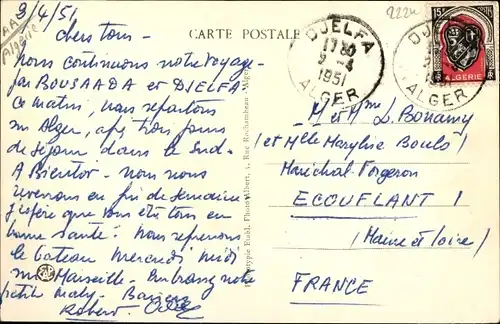 9/4/51
Chers tous -
nous continuons notre voyage -
par BOUSAADA et DJELFA
Ce matin, nous repartons
sur Alger, après trois jours
de séjour dans le Sud -
A Bientôt - nous nous
revenons en fin de semaine
J'espère que vous êtes tous en
bonne santé - Nous reprenons
le bateau mercredi midi
sur Marseille - Embrassez notre
petite - Baisers
Robert
AA
Algérie
CARTE POSTALE
Photo Albert, 4, Rue Rochambeau - Alger
DJELFA
17 30
9 - 4
1951
ALGER
222u
15F
ALGERIE
DJELFA
ALGER
M et Mme L. Bonamy
(et Mlle Maryline Bouls)
Maréchal-Forgeron
ECOUFLANT
(Maine et Loire)
FRANCE